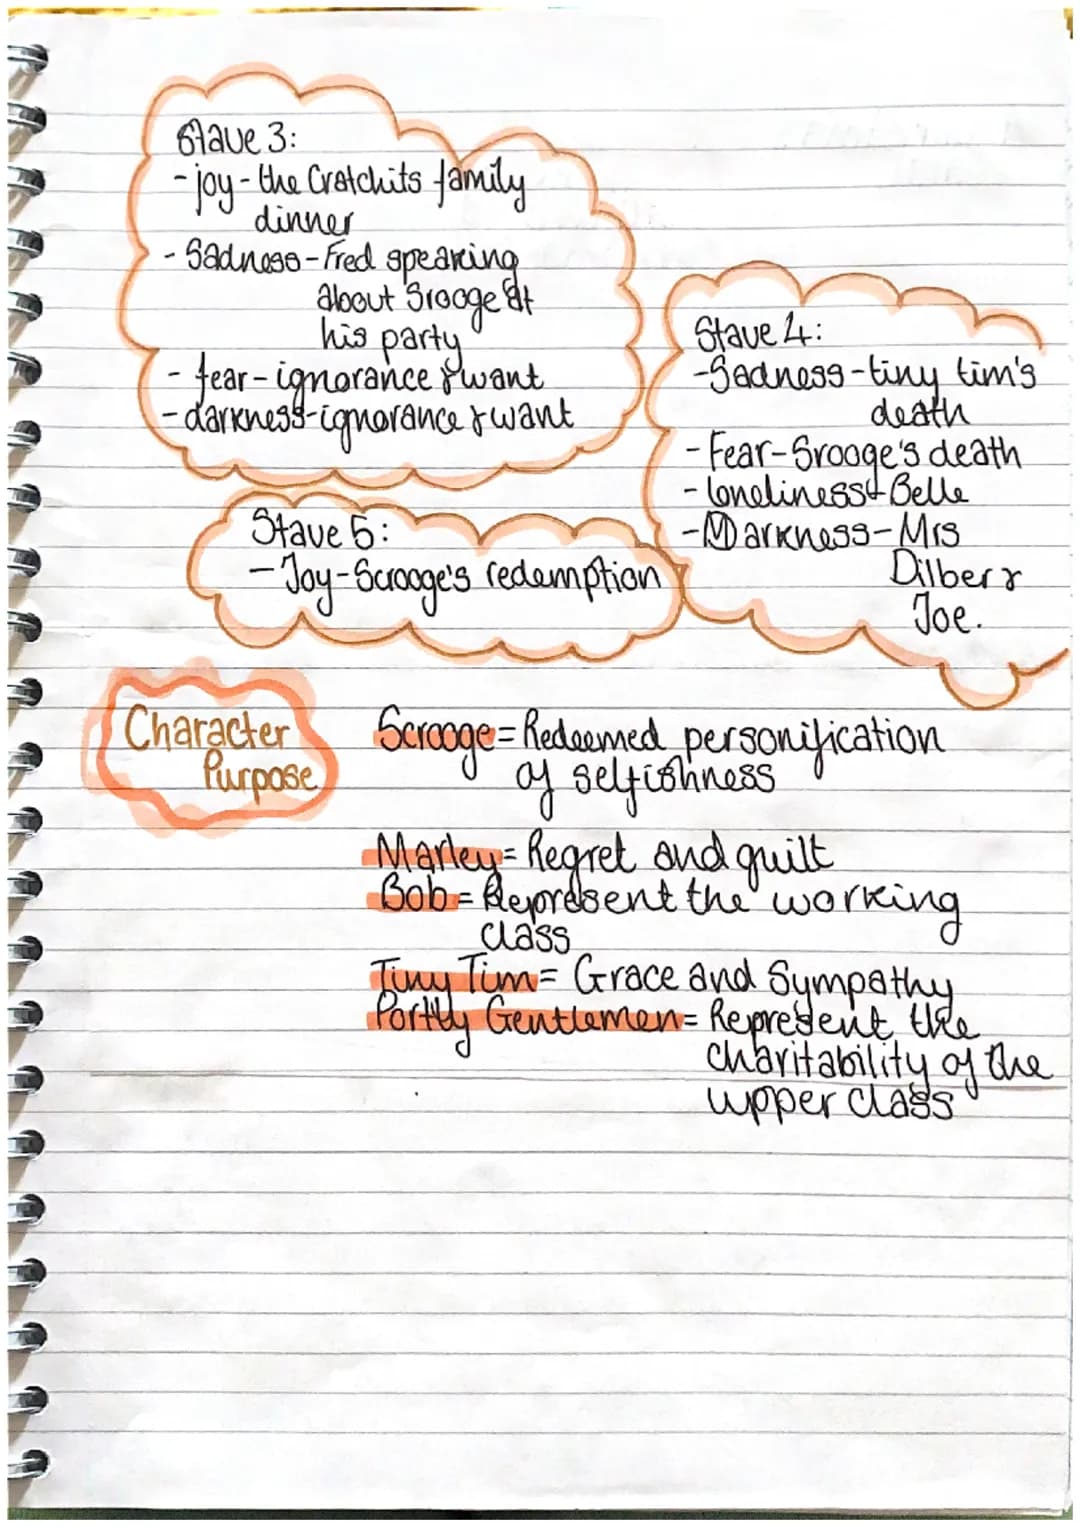 Stave 3:
- joy - the Cratchits family
dinner
- Sadness - Fred speaking
about Srooge at
his party
- fear - ignorance & want
- darkness - ignorance & want
Stave 4:
- Sadness - tiny tim's
death
- Fear - Srooge's death
- loneliness - Belle
- Darkness - Mrs
Dilber &
Joe.
Stave 5:
- Joy - Scrooge's redemption
Character
Purpose
Scrooge = Redeemed personification
of selfishness
Marley = Regret and guilt
Bob = Represent the working
class
Tiny Tim = Grace and Sympathy
Portly Gentlemen = Represent the
charitability of the
upper class